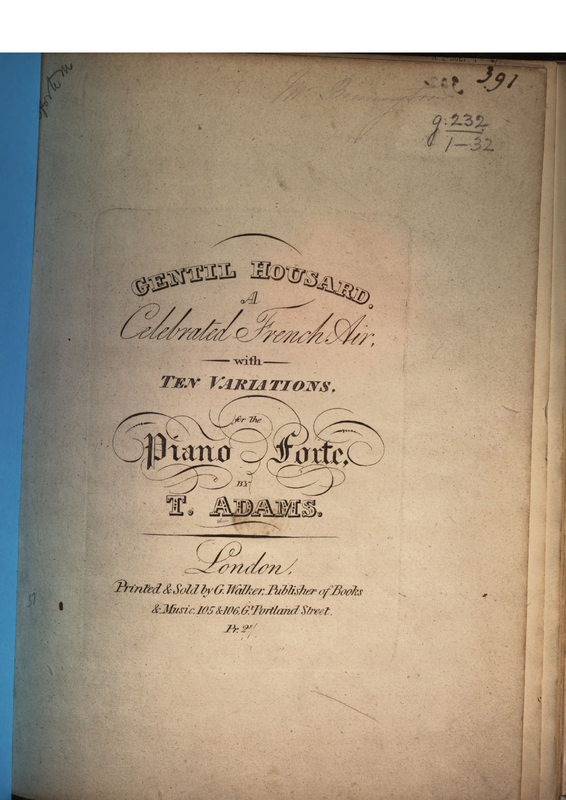 391
g.232
1-32
GENTIL HOUSARD,
A
Celebrated French Air,
with
TEN VARIATIONS.
for the
Piano Forte,
BY
T. ADAMS.
London,
Printed & Sold by G. Walker, Publisher of Books
& Music, 105 & 106, Gt. Portland Street.
Pr. 2/